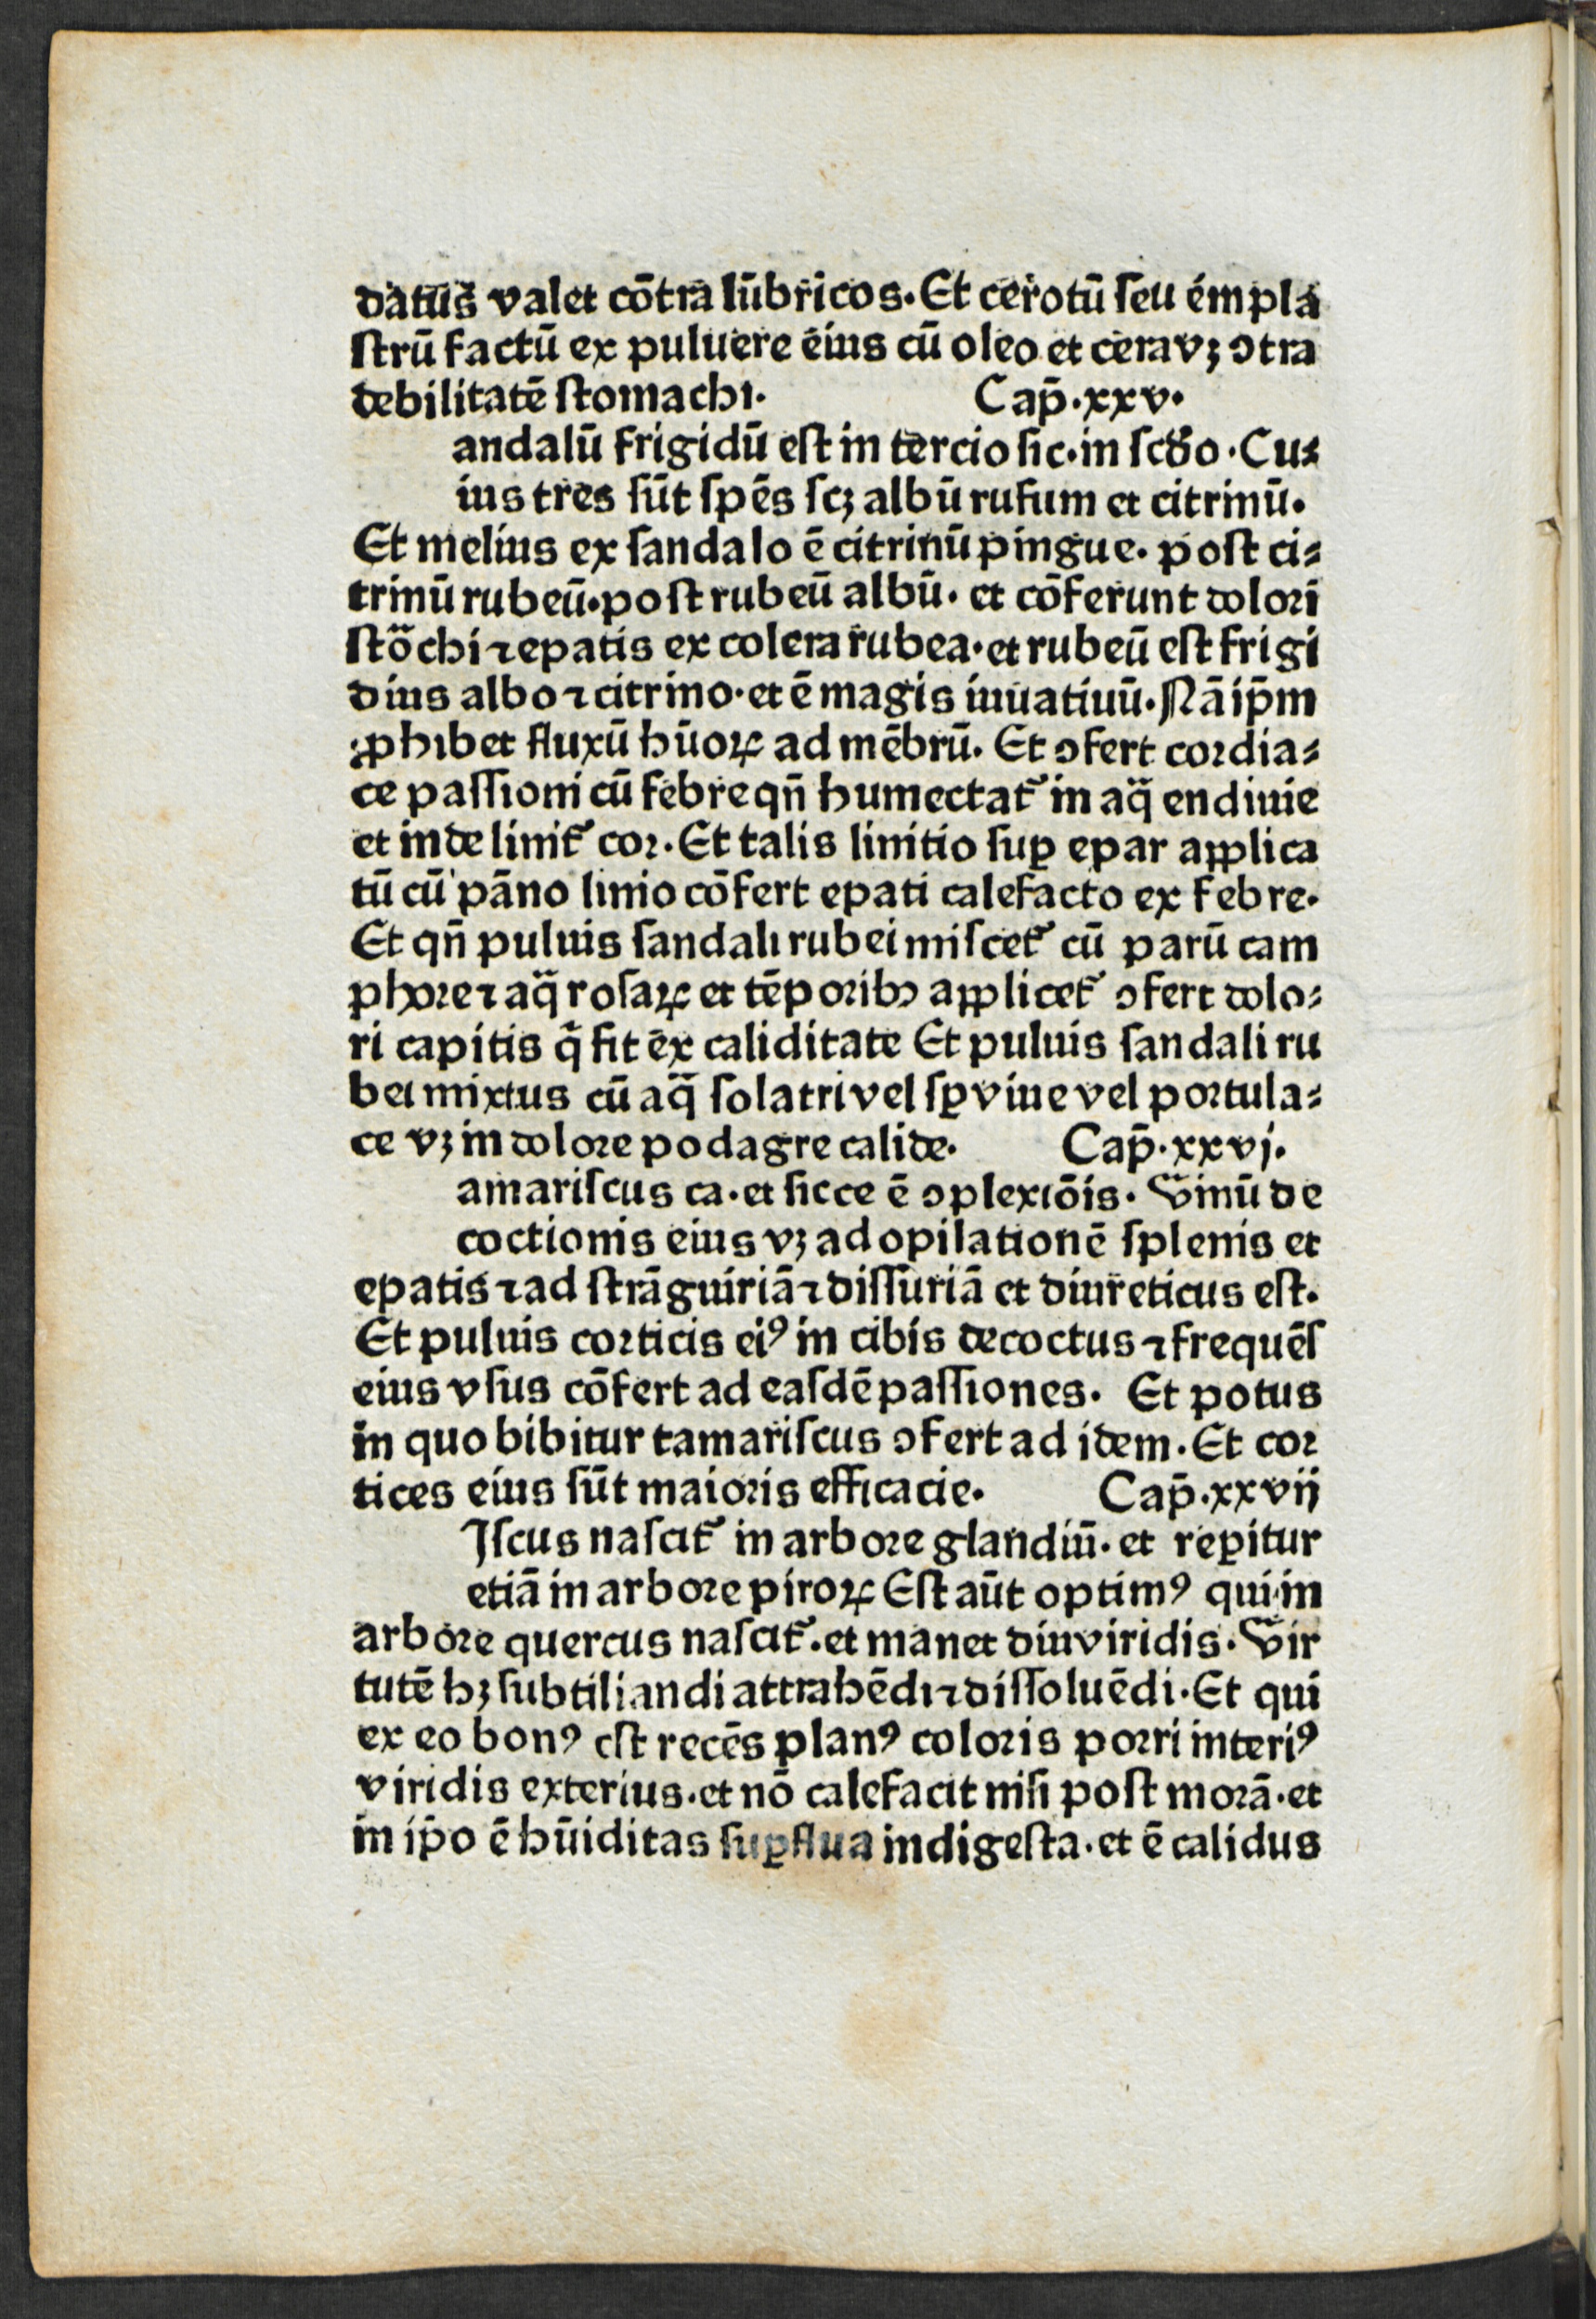 datus valet cõtra lũbricos. Et cerotũ ſeu empla
ſtrũ factũ ex puluere eius cũ oleo et cera vꝫ ↄtra
debilitatẽ ſtomachi. Cap̄. xxv.
andalũ frigidũ eſt in tercio ſic. in ſcďo. Cu⸗
ius tres ſũt ſpẽs ſcꝫ albũ rufum et citrinũ.
Et melius ex ſandalo ẽ citrinũ pingue. poſt ci⸗
trinũ rubeũ. poſt rubeũ albũ. et cõferunt dolori
ſtõchi ⁊ epatis ex colera rubea. et rubeũ eſt frigi
dius albo ⁊ citrino. et ẽ magis iuuatiuũ. Nã ip̄m
ꝓhibet fluxũ hũoꝝ ad mẽbrũ. Et ↄfert cordia⸗
ce paſſioni cũ febre qñ humectat᷑ in aq̃ endiuie
et inde linit᷑ cor. Et talis linitio ſuꝑ epar aꝓplica
tũ cũ pãno linio cõfert epati calefacto ex febre.
Et qñ puluis ſandali rubei miſcet᷑ cũ parũ cam
phore ⁊ aq̃ roſaꝝ et tẽporibꝰ applicet᷑ ↄfert dolo⸗
ri capitis q̃ fit ex caliditate Et puluis ſandali ru
bei mixtus cũ aq̃ ſolatri vel ſꝑ viue vel portula⸗
ce vꝫ in dolore podagre calide. Cap̄. xxvj.
amariſcus ca. et ſicce ẽ ↄplexiõis. Vinũ de
coctionis eius vꝫ ad opilationẽ ſplenis et
epatis ⁊ ad ſtrãguiriã ⁊ diſſuriã et diureticus eſt.
Et puluis corticis eiꝰ in cibis decoctus ⁊ frequẽſ
eius vſus cõfert ad eaſdẽ paſſiones. Et potus
in quo bibitur tamariſcus ↄfert ad idem. Et cor
tices eius ſũt maioris efficacie. Cap̄. xxvij
Jſcus naſcit᷑ in arbore glandiũ. et reꝑitur
etiã in arbore piroꝝ Eſt aũt optimꝰ qui in
arbore quercus naſcit᷑. et manet diu viridis. Vir
tutẽ hꝫ ſubtiliandi attrahẽdi ⁊ diſſoluẽdi. Et qui
ex eo bonꝰ eſt recẽs planꝰ coloris porri interiꝰ
viridis exterius. et nõ calefacit niſi poſt morã. et
in ip̄o ẽ hũiditas ſuꝑflua indigeſta. et ẽ calidus